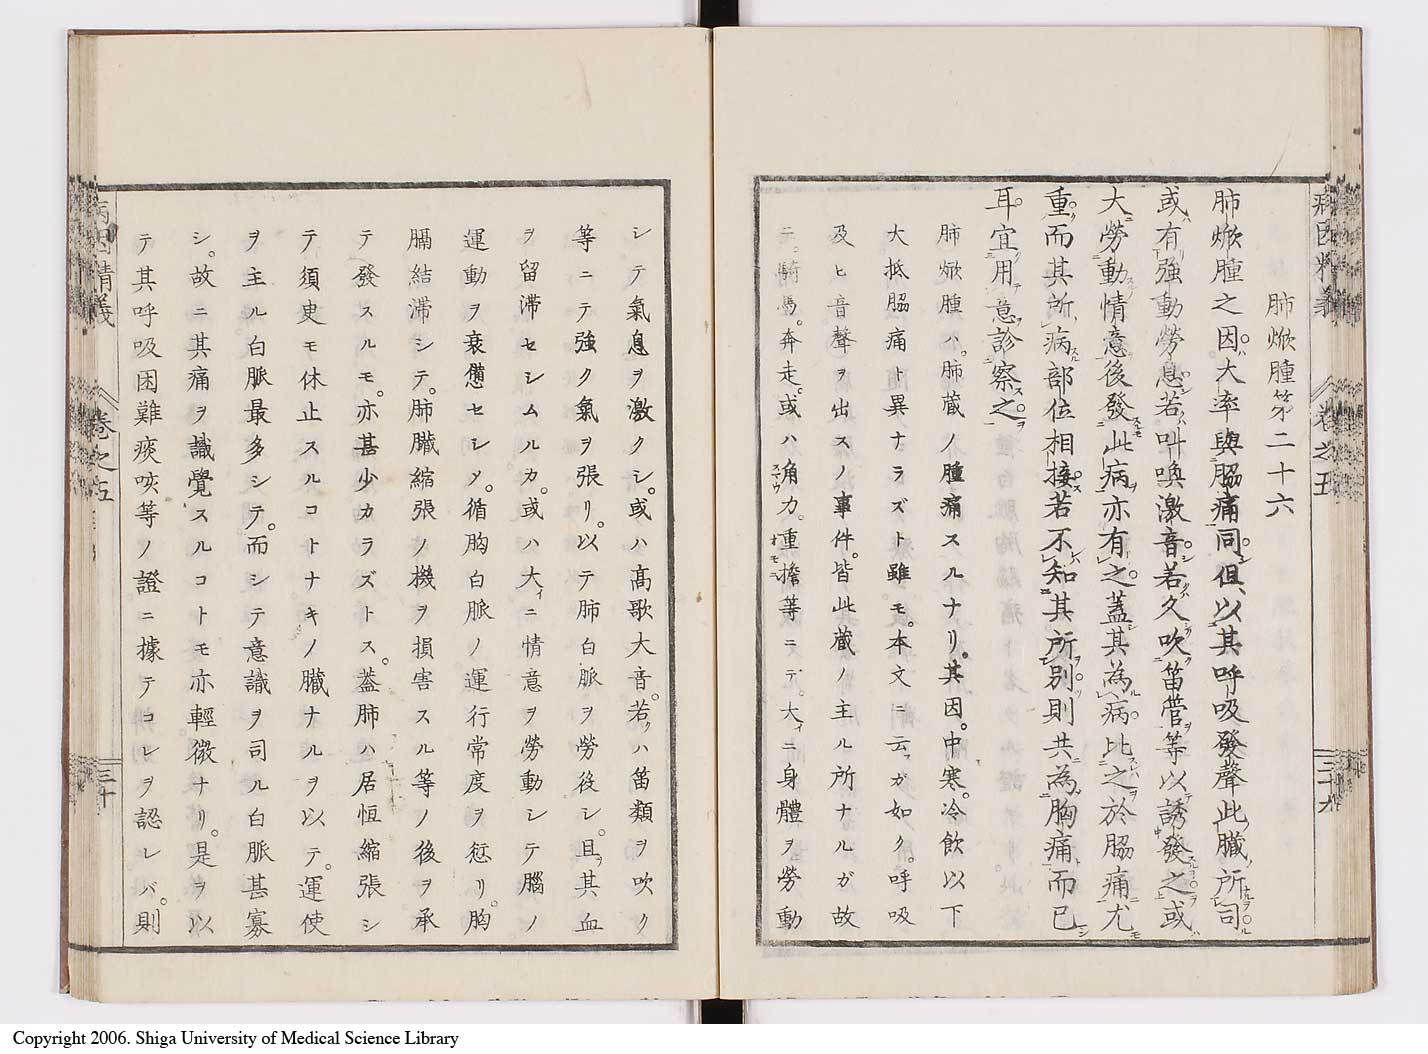 肺焮腫第二十六
肺焮腫之因大率與脇痛同但以其呼吸發聲此臓所司
或有強動勞息若叫喚激音若久吹笛管等以誘發之或
大勞動情意後發此病亦有之蓋其為病比之於脇痛尤
重而其所病部位相接若不知其所別則共為胸痛而已
耳宜用意診察之
肺焮腫ハ。肺蔵ノ腫痛スルナリ。其因。中寒。冷飲以下
大抵脇痛ト異ナラズト雖モ。本文ニ云ガ如ク。呼吸
及ヒ音聲ヲ出スノ事件。皆此蔵ノ主ル所ナルガ故
テ。騎馬。奔走。或ハ角力。重擔等ニテ。大ィニ身體ヲ勞動
シテ氣息ヲ激クシ。或ハ高歌大音。若クハ笛類ヲ吹ク
等ニテ強ク氣ヲ張リ。以テ肺白脈ヲ勞後シ。且ツ其血
ヲ留滞セシムルカ。或ハ大ィニ情意ヲ勞動シテ腦ノ
運動ヲ衰憊セシメ。循胸白脈ノ運行常度ヲ愆リ。胸
膈結滞シテ。肺臓縮張ノ機ヲ損害スル等ノ後ヲ承
テ發スルモ。亦甚少カラズトス。蓋肺ハ居恒縮張シ
テ須史モ休止スルコトナキノ臓ナルヲ以テ。運使
ヲ主ル白脈最多シテ。而シテ意識ヲ司ル白脈甚寡
シ。故ニ其痛ヲ識覺スルコトモ亦輕微ナリ。是ヲ以
テ其呼吸困難痰咳等ノ證ニ據テコレヲ認レバ。則
病因精義
卷之五
三十九
病因精義
卷之五
三十
Copyright 2006. Shiga University of Medical Science Library